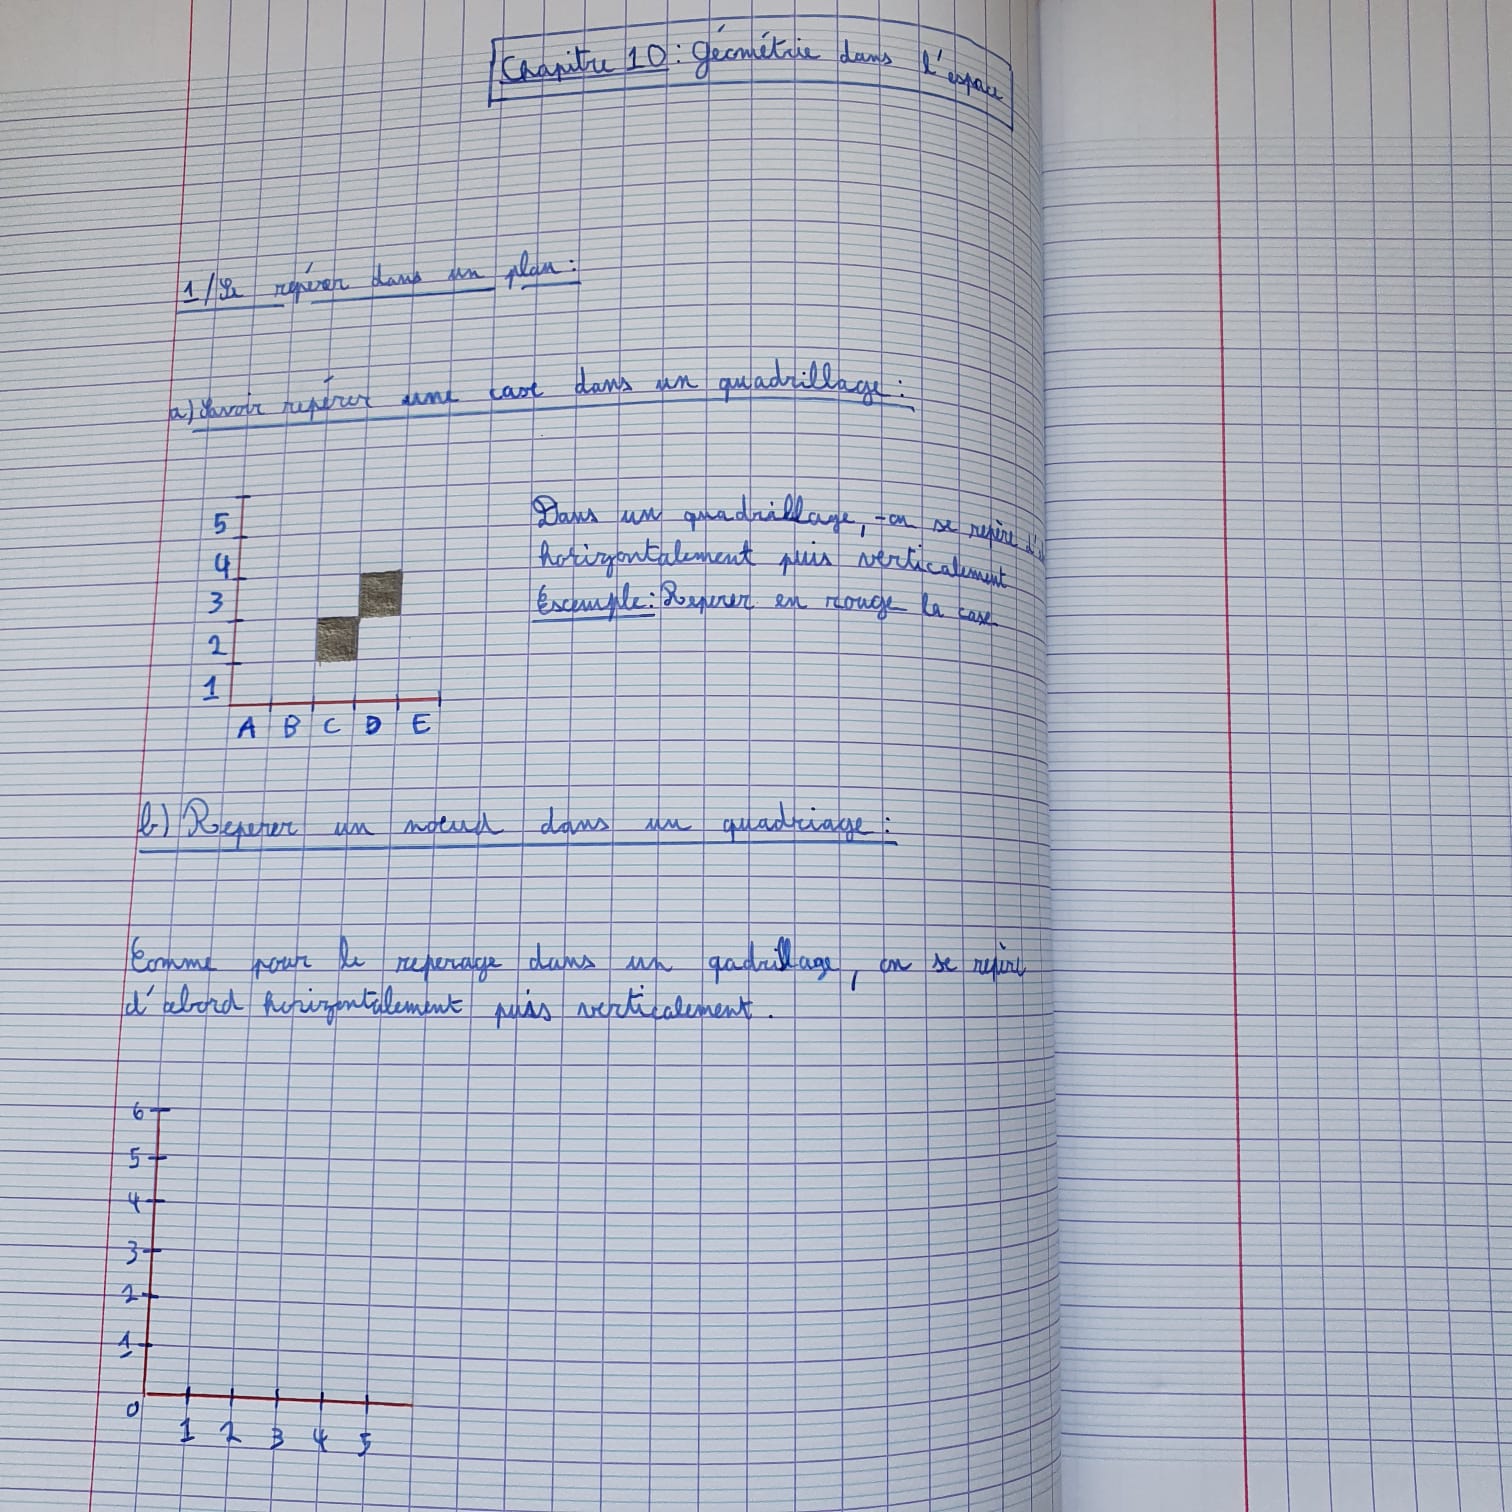 Chapitre 10 : Géométrie dans l'espace
1/ Se répérer dans un plan :
a) Savoir repérer une case dans un quadrillage :
5
4
3
2
1
A B C D E
Dans un quadrillage, on se repère
horizontalement puis verticalement
Exemple : Reperer en rouge la case
b) Reperer un noeud dans un quadriage :
Comme pour le reperage dans un qadrillage, on se repère
d'abord horizontalement puis verticalement.
6
5
4
3
2
1
0
1 2 3 4 5